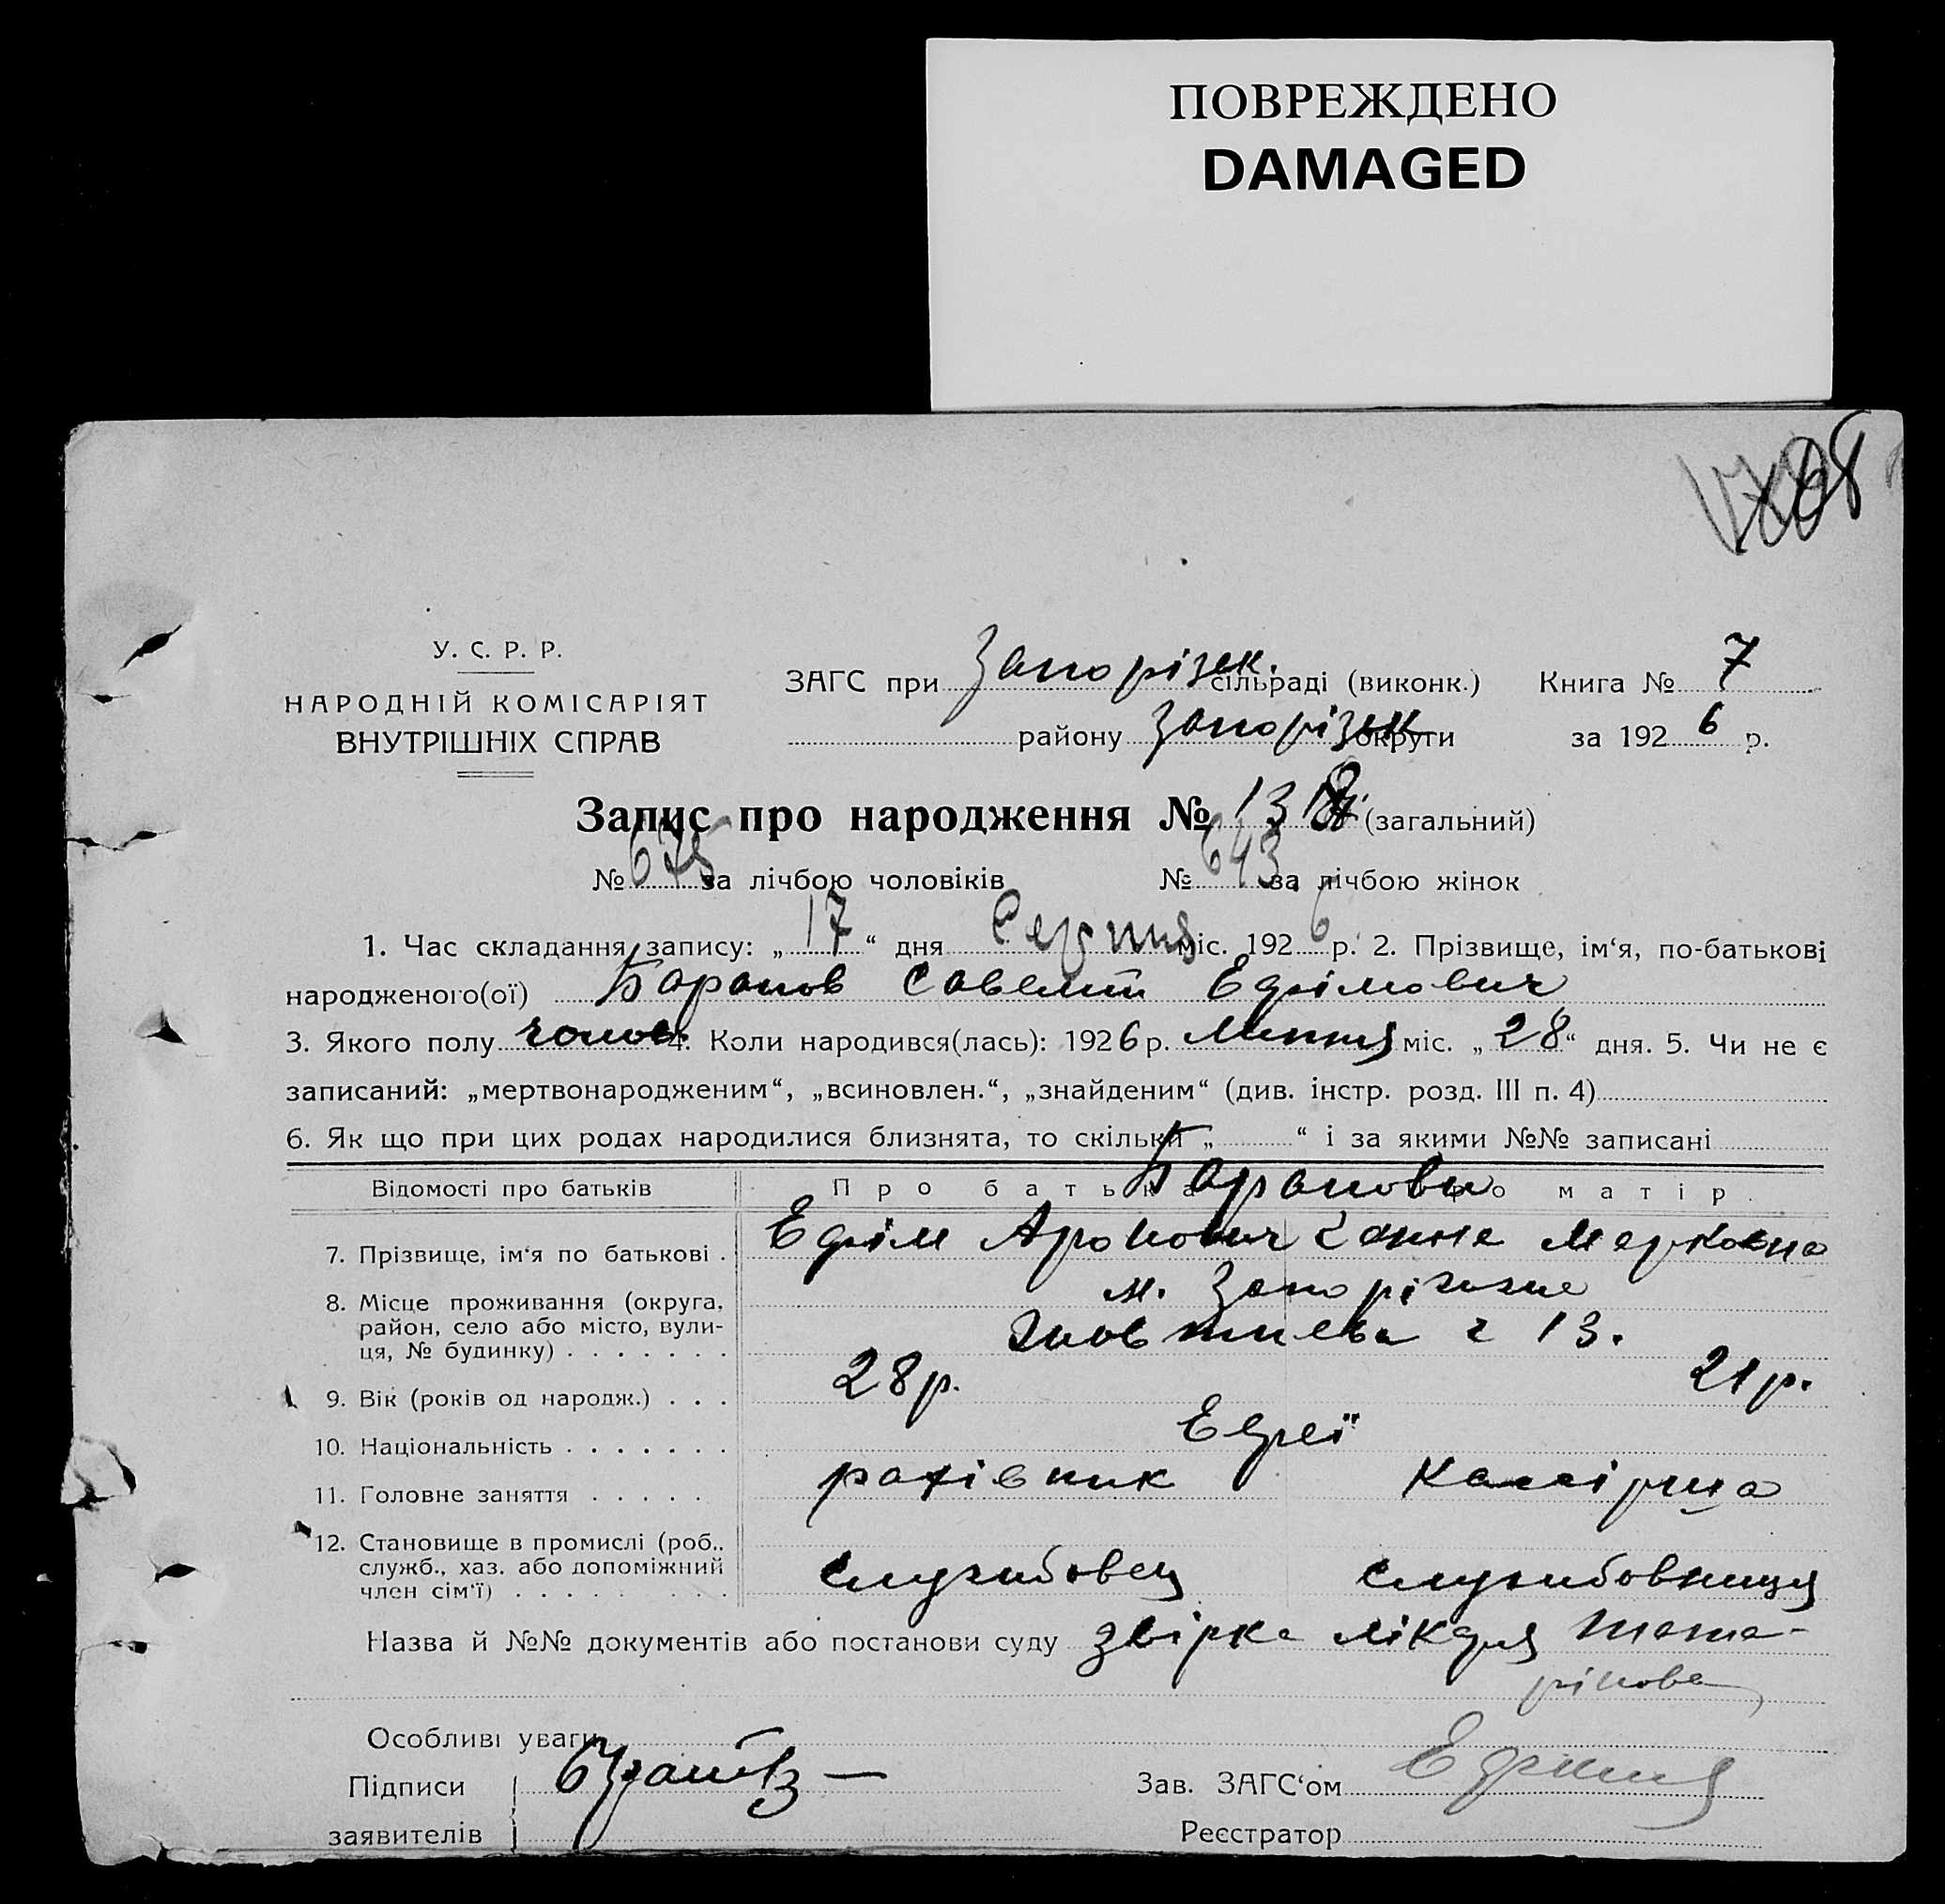 ПОВРЕЖДЕНО
DAMAGED
У. С. Р. Р.
НАРОДНІЙ КОМІСАРІЯТ
ВНУТРІШНІХ СПРАВ
ЗАГС при Запорізьк. сільраді (виконк.) Книга № 7
району Запорізьк округи за 1926 р.
Запис про народження № 1318 (загальний)
№ 675 за лічбою чоловіків № 643 за лічбою жінок
1. Час складання запису: „17“ дня Серпня міс. 1926 р. 2. Прізвище, ім‘я, по-батькові
народженого(ої) Баранов Савелій Ефімович
3. Якого полу чолов. 4. Коли народився(лась): 1926 р. Липня міс. „28“ дня. 5. Чи не є
записаний: „мертвонародженим“, „всиновлен.“, „знайденим“ (див. інстр. розд. III п. 4)
6. Як що при цих родах народилися близнята, то скільки „ “ і за якими №№ записані
Відомості про батьків Про батька Про матір.
Баранови
7. Прізвище, ім‘я по батькові . Ефім Аронович Ханна Марковна
8. Місце проживання (округа, район, село або місто, вулиця, № будинку) . . . . . . . м. Запоріжжя
Жовтнева ч 13.
9. Вік (років од народж.) . . . 28 р. 21 р.
10. Національність . . . . . . . Евреї
11. Головне заняття . . . . . рахівник Кассірша
12. Становище в промислі (роб., служб., хаз. або допоміжний член сім‘ї) службовец службовниця
Назва й №№ документів або постанови суду звірка лікаря
Особливі уваги
Підписи
Зав. ЗАГС‘ом
заявителів
Реєстратор